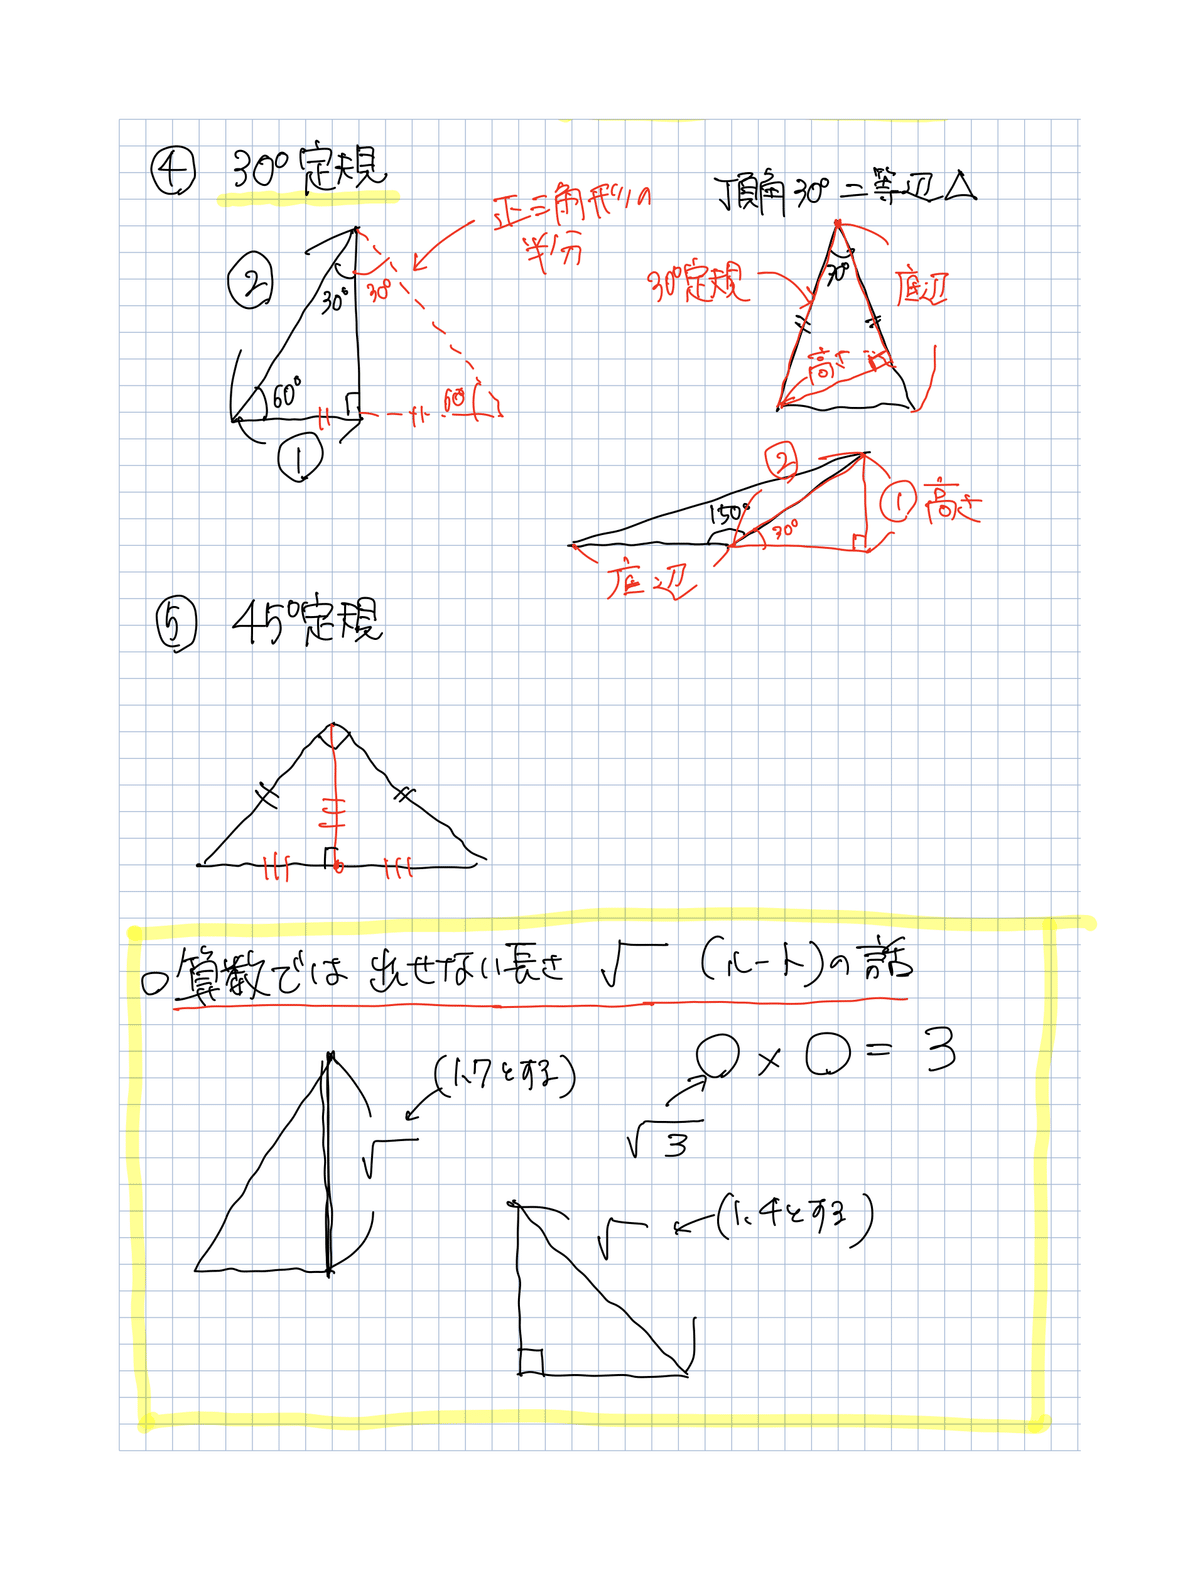 ④ 30°定規
正三角形の
半分
②
30°
30°
60°
60°
①
頂角30°二等辺△
30°定規
30°
底辺
高さ
②
150°
30°
① 高さ
底辺
⑤ 45°定規
○算数では出せない長さ √ (ルート)の話
(1.7とする)
√
○×○=3
√3
√ ←(1.4とする)